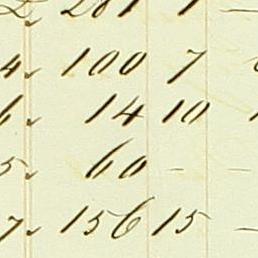 281 1 —
4 100 7
6 14 10
5 60 — —
7 156 15 —